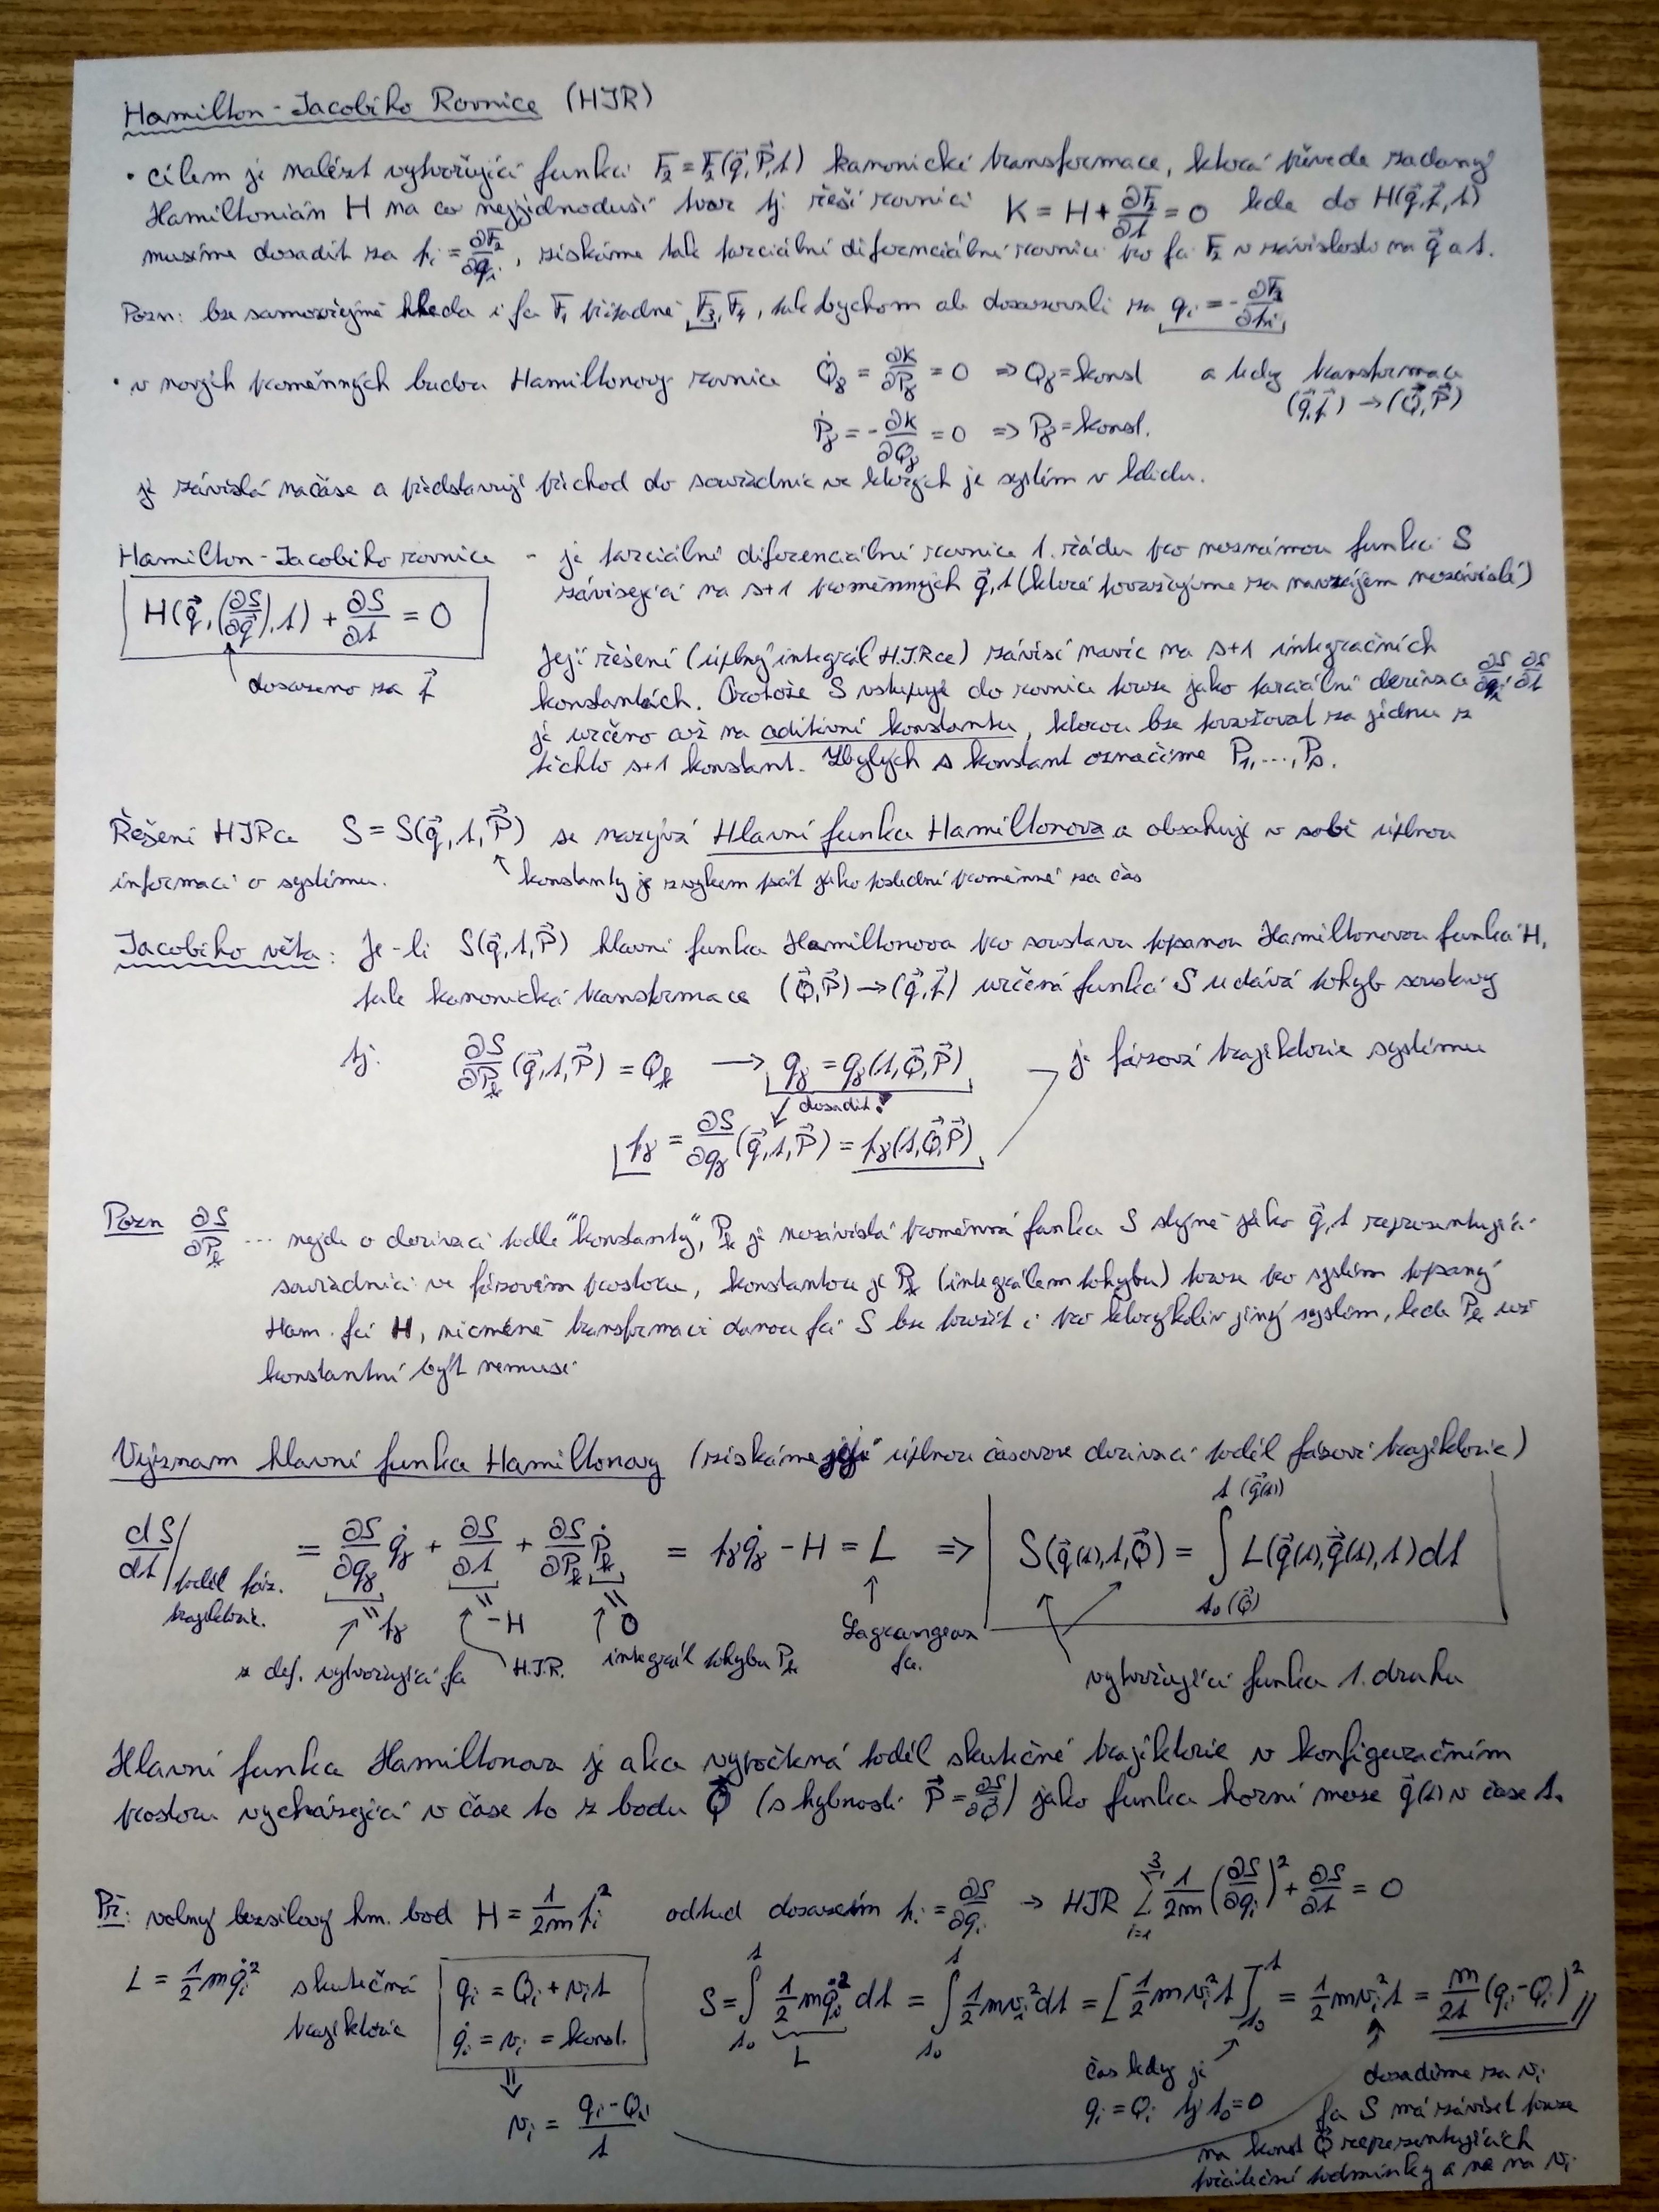 Hamilton-Jacobiho Rovnice (HJR)
• cílem je nalézt vytvořující funkci F₂=F₂(q⃗,P⃗,t) kanonické transformace, která převede zadaný
Hamiltonián H na co nejjednoduší tvar tj. řeší rovnici K = H + ∂F₂/∂t = 0 kde do H(q⃗,p⃗,t)
musíme dosadit za pᵢ = ∂F₂/∂qᵢ, získáme tak parciální diferenciální rovnici pro fci F₂ v závislosti na q⃗ a t.
Pozn: lze samozřejmě hledat i fci F₁ případně F₃,F₄, tak bychom ale dosazovali za qᵢ = -∂F₃/∂pᵢ
• v nových proměnných budou Hamiltonovy rovnice Q̇ⱼ = ∂K/∂Pⱼ = 0 => Qⱼ=konst a tedy transformace
(q⃗,p⃗) → (Q⃗,P⃗)
Ṗⱼ = -∂K/∂Qⱼ = 0 => Pⱼ=konst.
je závislá na čase a představuje přechod do souřadnic ve kterých je systém v klidu.
Hamilton-Jacobiho rovnice - je parciální diferenciální rovnice 1. řádu pro neznámou funkci S
závisející na s+1 proměnných q⃗,t (které považujeme za navzájem nezávislé)
H(q⃗,(∂S/∂q⃗),t) + ∂S/∂t = 0
dosazeno za p⃗
Její řešení (úplný integrál H.J.Rce) závisí navíc na s+1 integračních
konstantách. Protože S vstupuje do rovnice pouze jako parciální derivace ∂S/∂qᵢ, ∂S/∂t
je určeno až na aditivní konstantu, kterou lze považovat za jednu z
těchto s+1 konstant. Zbylých s konstant označíme P₁,...,Pₛ.
Řešení HJRce S = S(q⃗,t,P⃗) se nazývá Hlavní funkce Hamiltonova a obsahuje v sobě úplnou
informaci o systému. konstanty je zvykem psát jako poslední proměnné za čas
Jacobiho věta: Je-li S(q⃗,t,P⃗) hlavní funkce Hamiltonova pro soustavu popsanou Hamiltonovou funkcí H,
pak kanonická transformace (Q⃗,P⃗) → (q⃗,p⃗) určená funkcí S udává pohyb soustavy
tj. ∂S/∂Pₖ (q⃗,t,P⃗) = Qₖ → qⱼ = qⱼ(t,Q⃗,P⃗) je fázová trajektorie systému
dosadit!
pⱼ = ∂S/∂qⱼ (q⃗,t,P⃗) = pⱼ(t,Q⃗,P⃗)
Pozn ∂S/∂Pₖ ... nejde o derivaci podle "konstanty", Pₖ je nezávislá proměnná funkce S stejně jako q⃗,t reprezentující
souřadnici ve fázovém prostoru, konstantou je Pₖ (integrálem pohybu) pouze pro systém popsaný
Ham. fcí H, nicméně transformaci danou fcí S lze použít i pro kterýkoliv jiný systém, kde Pₖ už
konstantní být nemusí
Význam hlavní funkce Hamiltonovy (získáme její úplnou časovou derivací podél fázové trajektorie)
dS/dt| podél fáz. trajektorie. = ∂S/∂qⱼ q̇ⱼ + ∂S/∂t + ∂S/∂Pₖ Ṗₖ = pⱼq̇ⱼ - H = L => S(q⃗(t),t,Q⃗) = ∫ L(q⃗(t),q̇⃗(t),t)dt
t (q⃗(t))
t₀ (Q⃗)
= pⱼ = -H = 0 Lagrangeova fce.
z def. vytvořující fce H.J.R. integrál pohybu Pₖ vytvořující funkce 1. druhu
Hlavní funkce Hamiltonova je akce vypočtená podél skutečné trajektorie v konfiguračním
prostoru vycházející v čase t₀ z bodu Q⃗ (s hybností P⃗=∂S/∂Q⃗) jako funkce horní meze q⃗(t) v čase t.
Př: volný bezsilový hm. bod H = 1/2m pᵢ² odtud dosazením pᵢ = ∂S/∂qᵢ → HJR ∑ᵢ₌₁³ 1/2m (∂S/∂qᵢ)² + ∂S/∂t = 0
L = ½mq̇ᵢ² skutečná trajektorie qᵢ = Qᵢ + vᵢt
q̇ᵢ = vᵢ = konst.
S = ∫ₜ₀ᵗ ½mq̇ᵢ² dt = ∫ₜ₀ᵗ ½mvᵢ²dt = [½mvᵢ²t]ₜ₀ᵗ = ½mvᵢ²t = m/2t (qᵢ-Qᵢ)²
L
⇓
vᵢ = (qᵢ-Qᵢ)/t
čas kdy je
qᵢ=Qᵢ tj t₀=0
dosadíme za vᵢ
fce S má záviset pouze
na konst Q⃗ reprezentujících
počáteční podmínky a ne na vᵢ